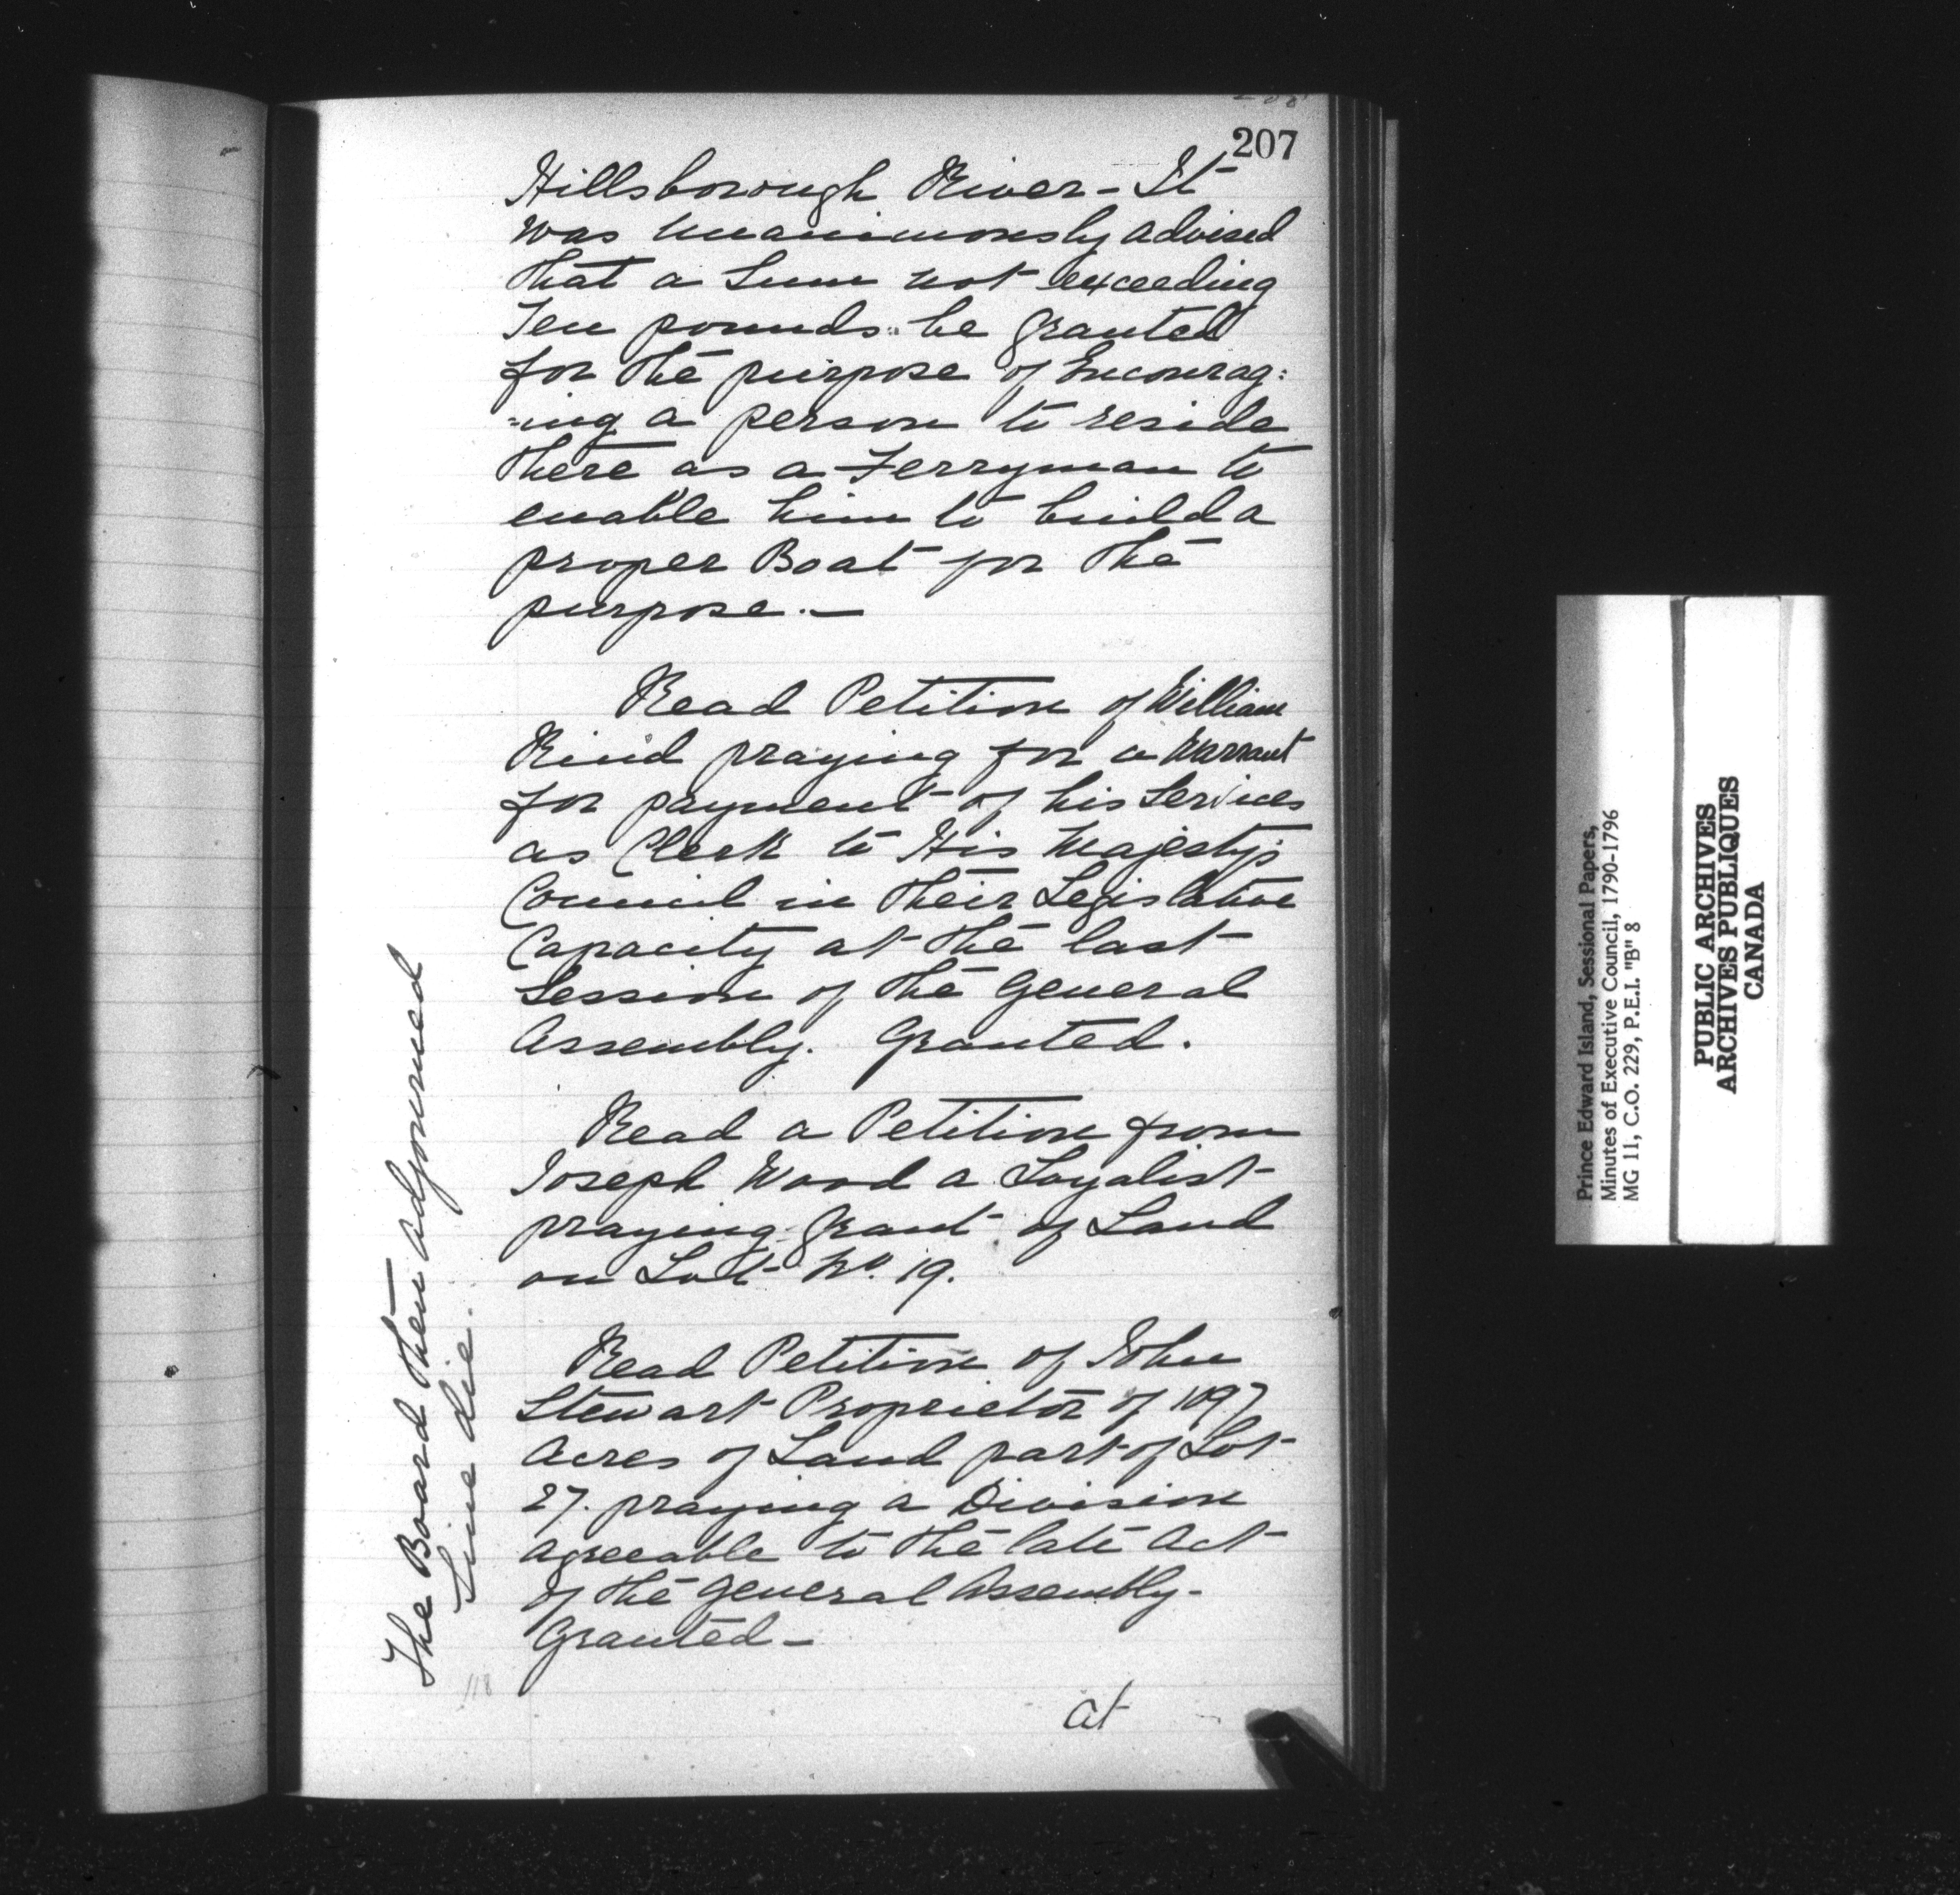 207
Hillsborough River - It
was unanimously advised
that a Sum not exceeding
Ten pounds be granted
for the purpose of Encourag:
=ing a person to reside
there as a Ferryman to
enable him to build a
proper Boat for the
purpose.—
Read Petition of William
Rind praying for a Warrant
for payment of his Services
as Clerk to His Majesty's
Council in their Legislative
Capacity at the last
Session of the General
Assembly. Granted.
Read a Petition from
Joseph Wood a Loyalist
praying Grant of Land
on Lot No. 19.
Read Petition of John
Stewart Proprietor of
Acres of Land part of Lot
27. praying a Division
agreeable to the late Act
of the General Assembly-
Granted -
at
The Board then adjourned
Sine die.
118
Prince Edward Island, Sessional Papers,
Minutes of Executive Council, 1790-1796
MG 11, C.O. 229, P.E.I. "B" 8
PUBLIC ARCHIVES
ARCHIVES PUBLIQUES
CANADA